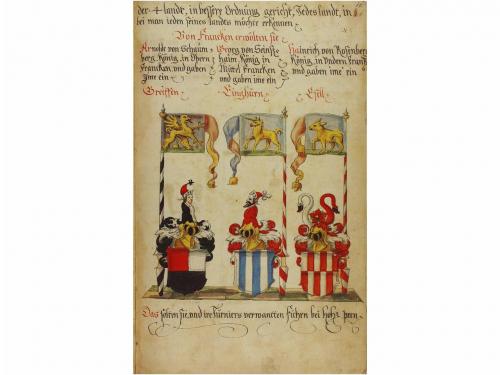 der 4 landt, in bessere Ordnung gericht, Jedes landt, in
bei man ieden seines landes möchte erkennen
Von Francken erwölten sie
Arnolde von Schaum
berg König, in Obern
Francken, und gaben
ime ein
Greiffen
Georg von Seinß
haim König in
Mittel Francken
und gaben ime ein
Einghürn
Hainrich von Rosenberg
König, in Undern Franck
und gaben ime ein
Esell
Das seien sie, und ire Turniers verwanten bei